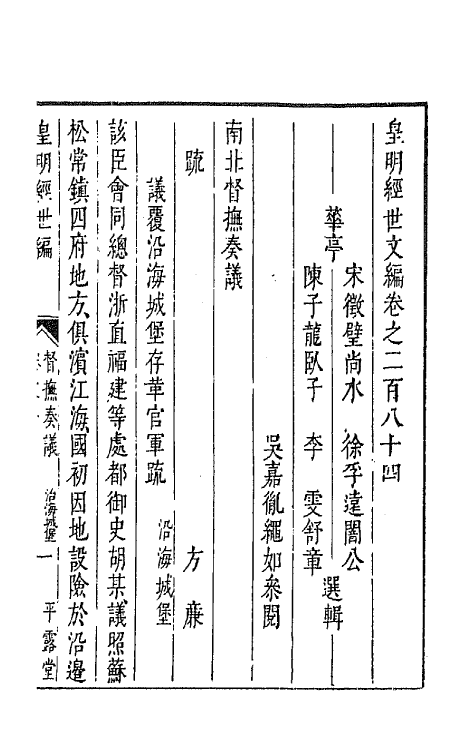 皇明經世文編卷之二百八十四
華亭
宋徵璧尚水 徐孚遠闇公
陳子龍臥子 李 雯舒章
選輯
吳嘉胤繩如叅閱
南北督撫奏議
疏 方 廉
議覆沿海城堡存革官軍疏 沿海城堡
該臣會同總督浙直福建等處都御史胡某議照蘇
松常鎮四府地方俱濱江海國初因地設險於沿邊
皇明經世編 督撫奏議 沿海城堡 一 平露堂